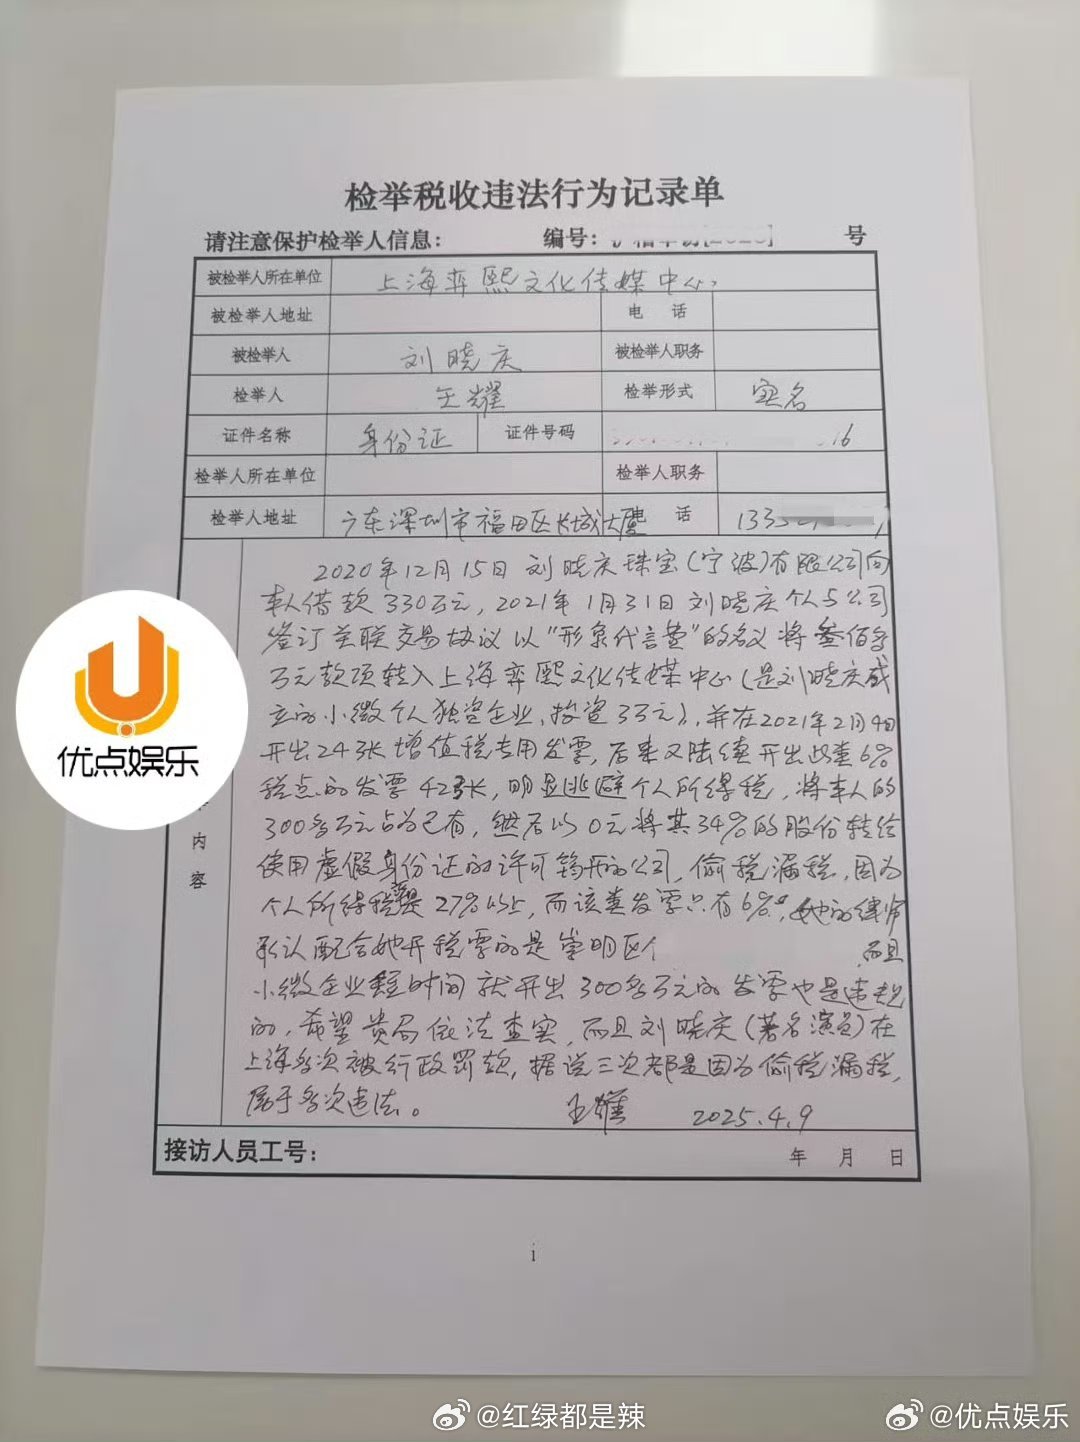 检举税收违法行为记录单
请注意保护检举人信息： 编号： 号
被检举人所在单位 上海弈熙文化传媒中心
被检举人地址 电 话
被检举人 刘晓庆 被检举人职务
检举人 王耀 检举形式 实名
证件名称 身份证 证件号码 16
检举人所在单位 检举人职务
检举人地址 广东深圳市福田区长城大厦 电 话 133
2020年12月15日刘晓庆珠宝(宁波)有限公司向
本人借款330万元，2021年1月31日刘晓庆个人与公司
签订关联交易协议以“形象代言费”的名义将叁佰多
万元款项转入上海弈熙文化传媒中心(是刘晓庆成
立的小微个人独资企业，投资3万元)，并在2021年2月4日
开出24张增值税专用发票，后来又陆续开出此类6%
税点的发票42张，明显逃避个人所得税，将本人的
300多万元占为己有，然后以0元将其34%的股份转给
使用虚假身份证的许可筠开的公司，偷税漏税，因为
个人所得税是27%以上，而该类发票只有6%，她的律师
承认配合她开税票的是崇明区个 而且
小微企业短时间就开出300多万元的发票也是违规
的，希望贵局依法查实，而且刘晓庆(著名演员)在
上海多次被行政罚款，据说三次都是因为偷税漏税，
属于多次违法。 王耀 2025.4.9
内
容
接访人员工号： 年 月 日
i
优点娱乐
@红绿都是辣
@优点娱乐